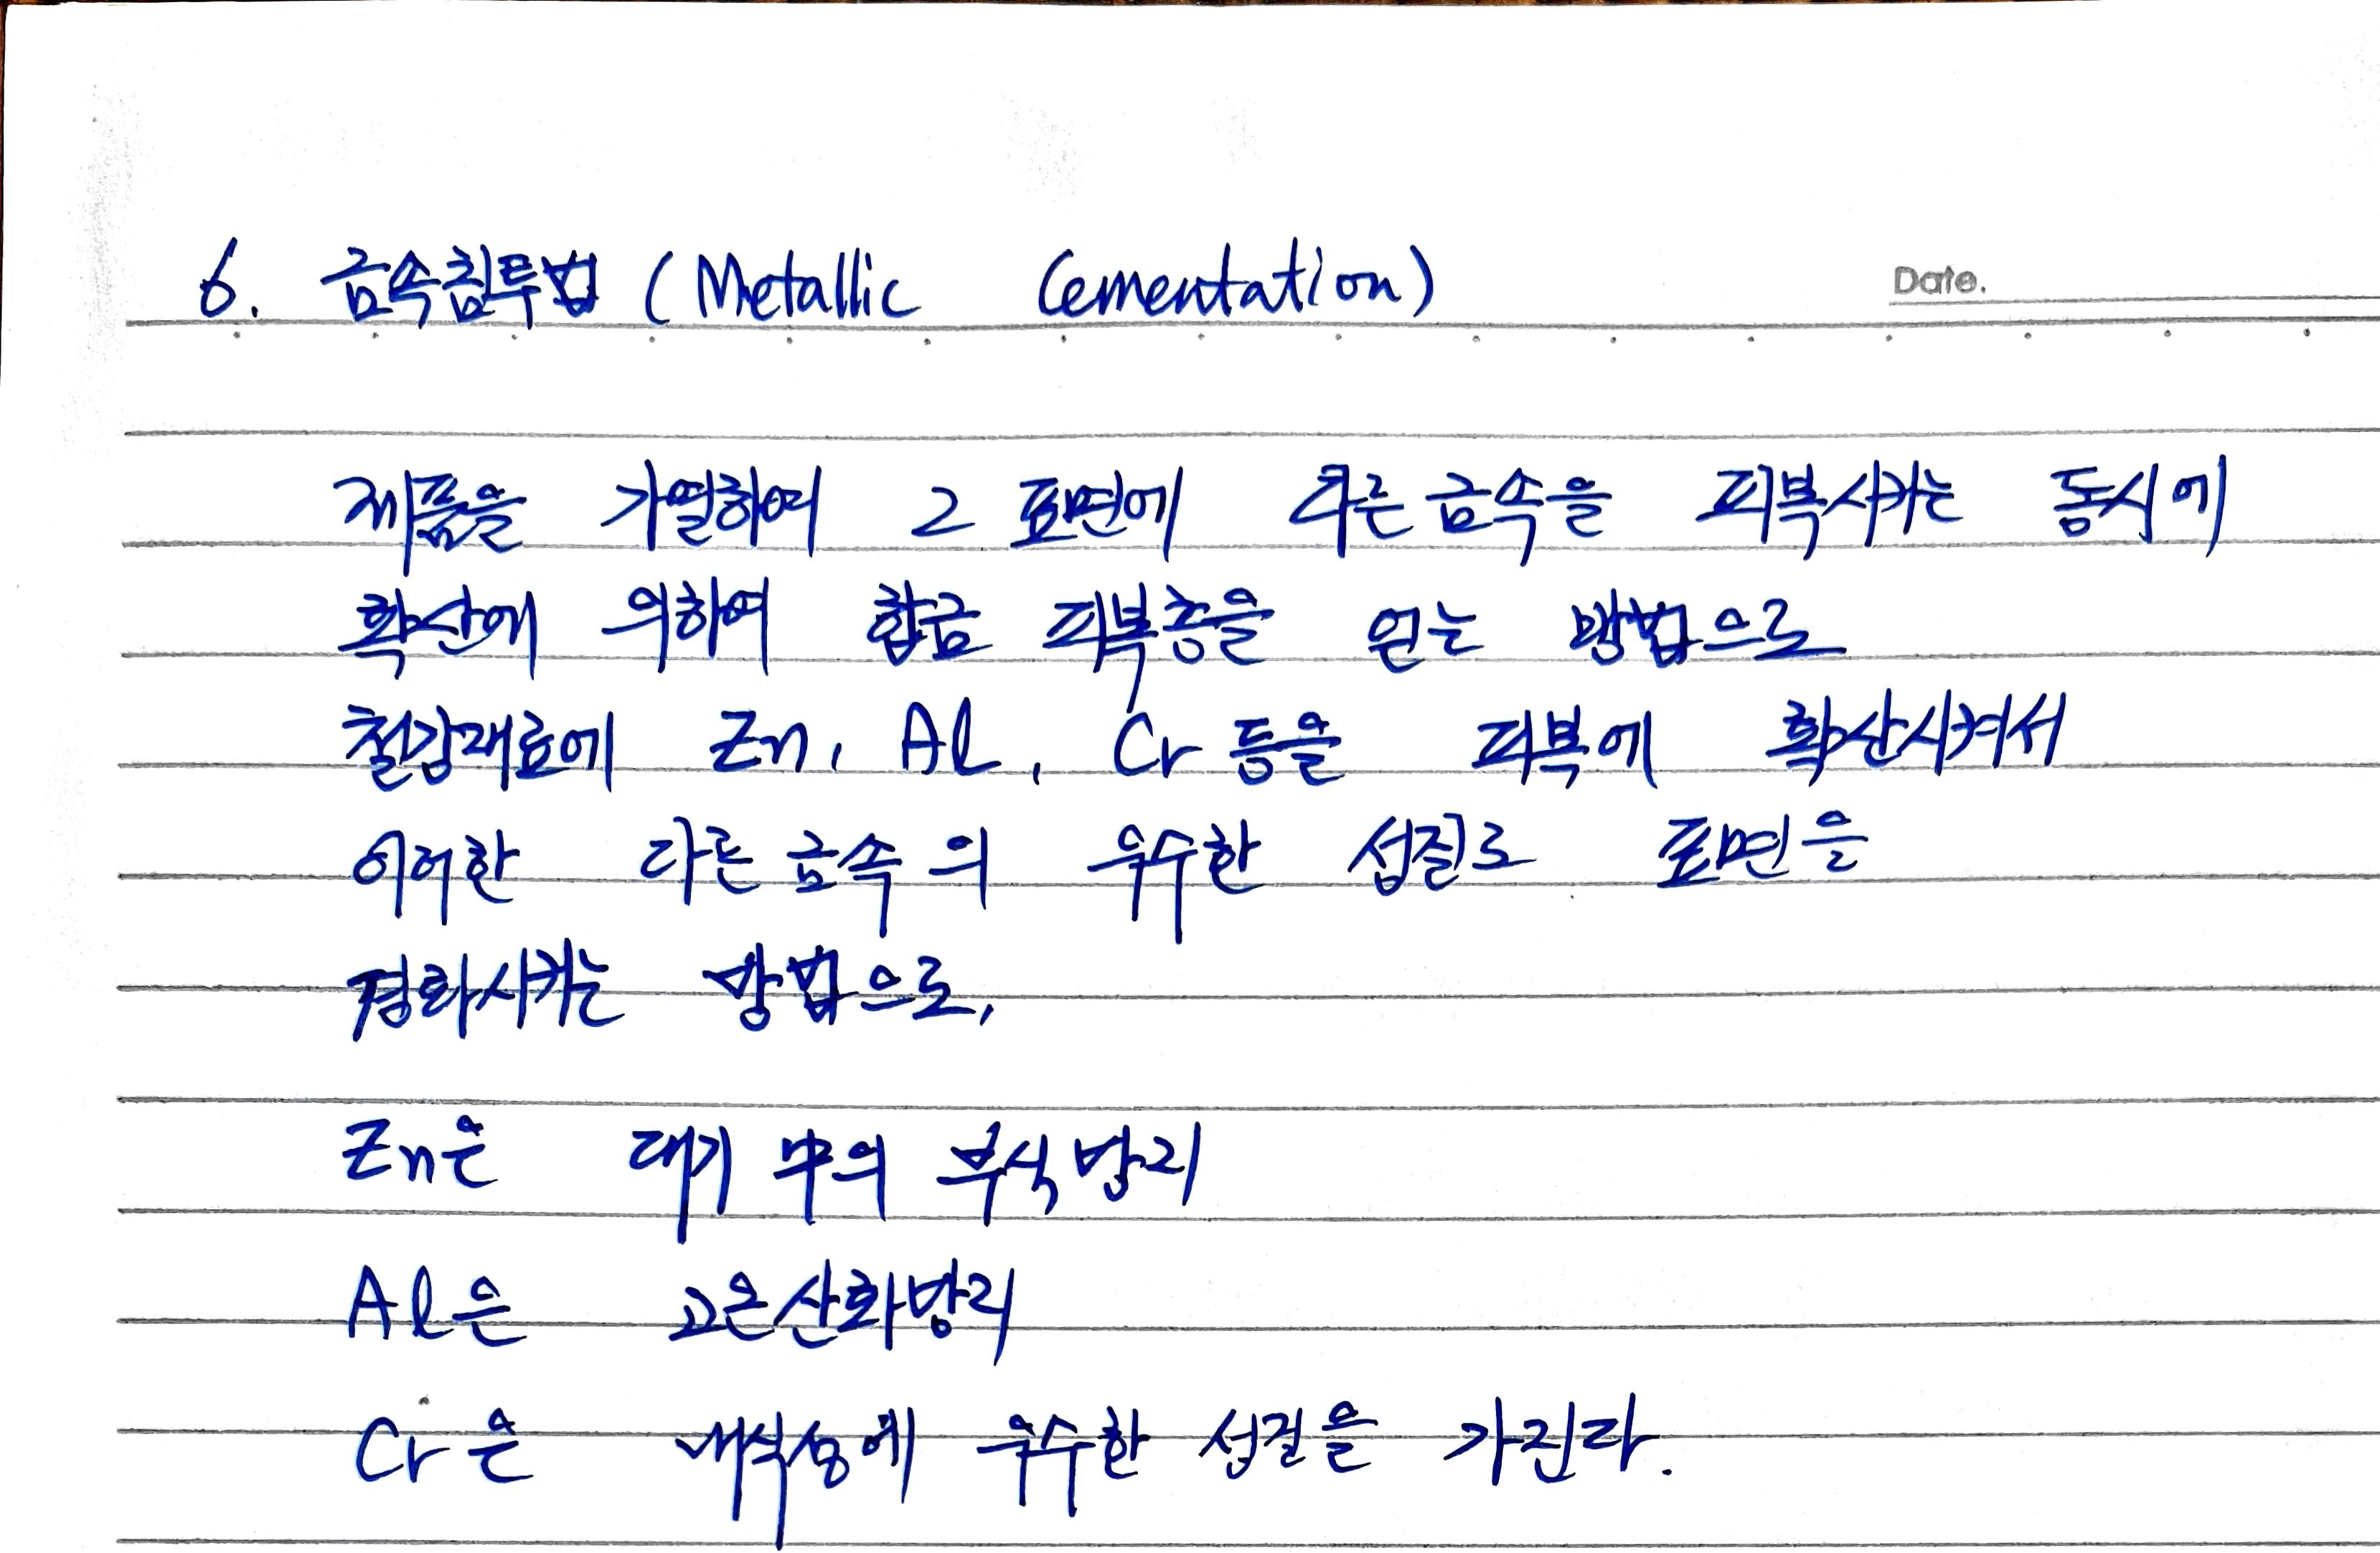 6. 금속침투법 (Metallic Cementation)
Date.
제품을 가열하여 그 표면에 다른 금속을 피복시키는 동시에
확산에 의하여 합금 피복층을 얻는 방법으로
철강재료에 Zn, Al, Cr 등을 피복에 확산시켜서
이러한 다른 금속의 우수한 성질로 표면을
경화시키는 방법으로,
Zn은 대기 中의 부식방지
Al은 고온산화방지
Cr은 내식성에 우수한 성질을 가진다.